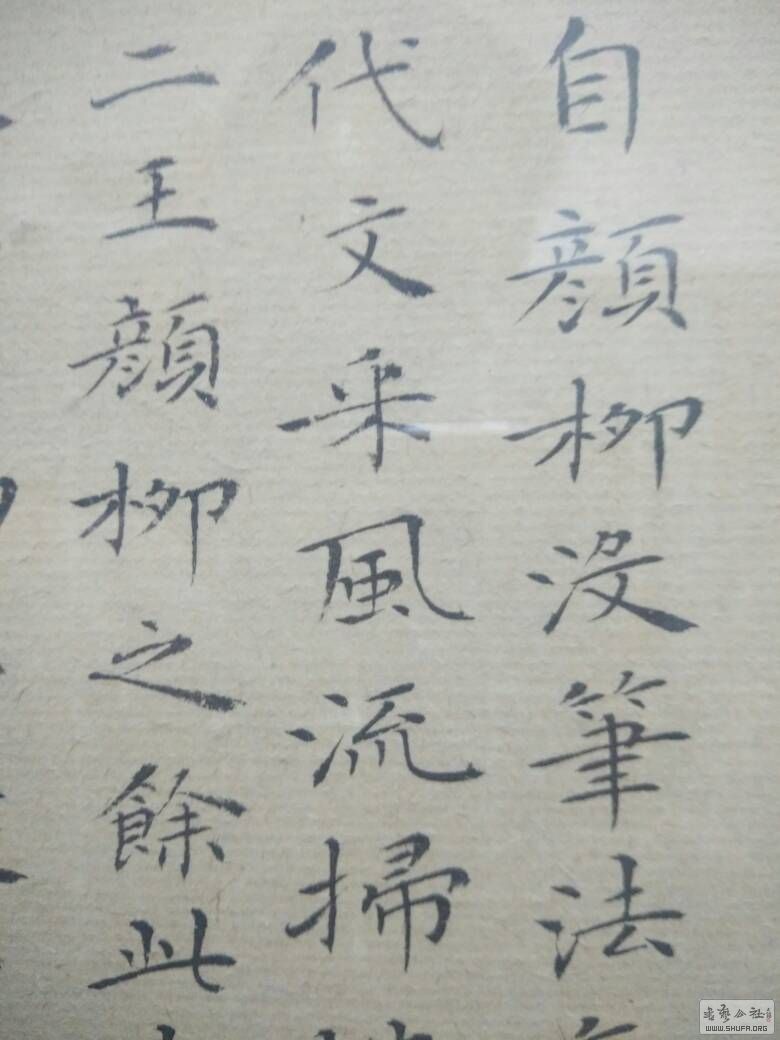 自顏柳沒筆法
代文采風流掃
二王顏柳之餘此
WWW.SHUFA.ORG